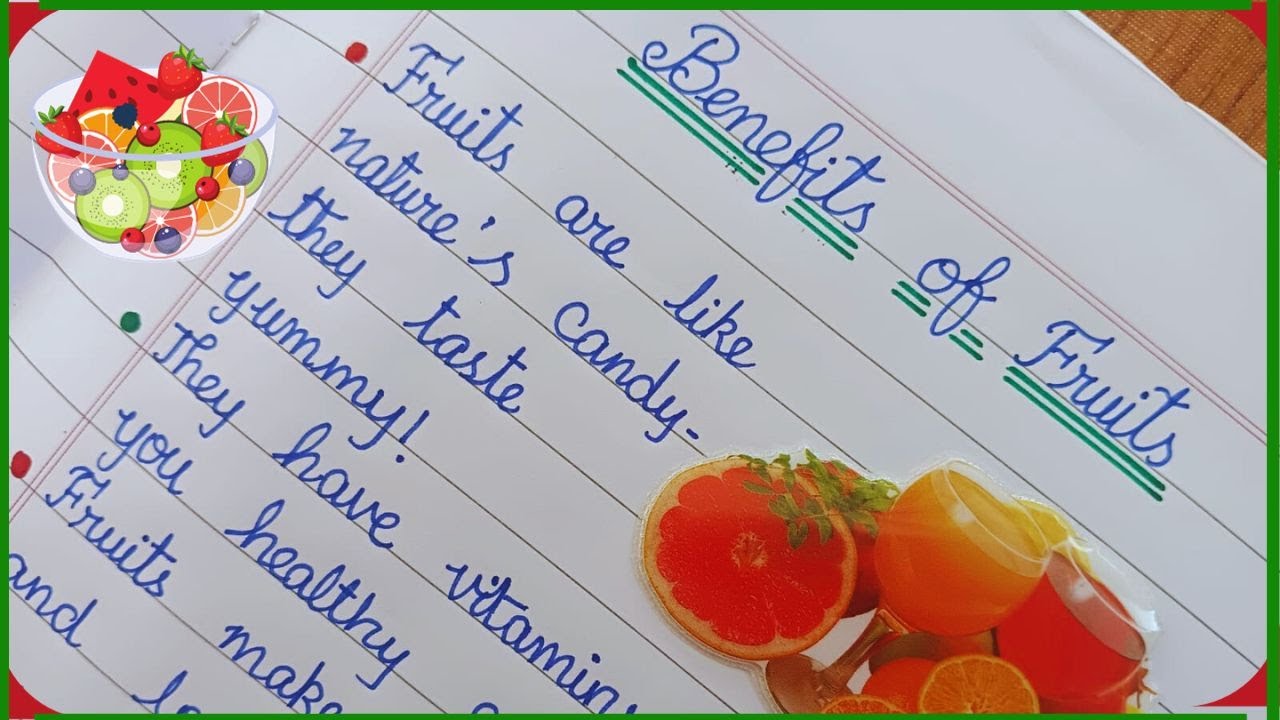 Benefits of Fruits
Fruits are like
nature's candy-
they taste
yummy!
They have
you healthy
Fruits make
and